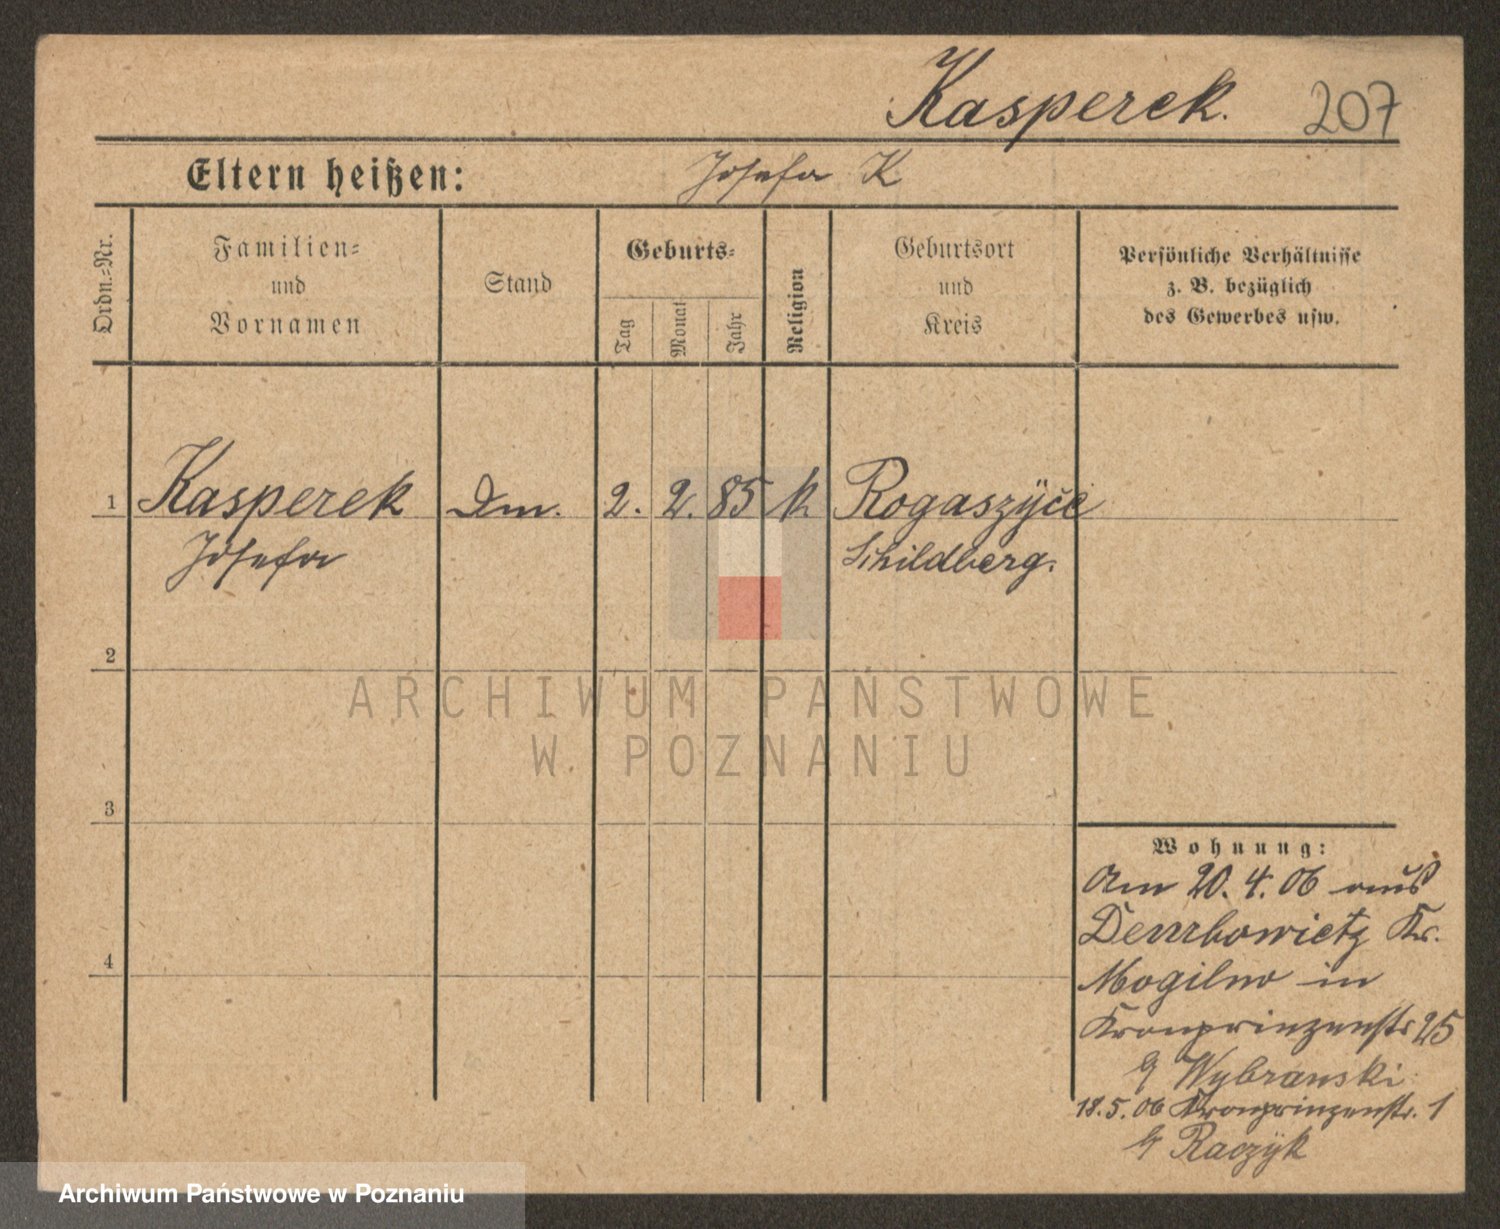 Kasperek. 207
Eltern heißen: Josefa K
Ordn.=Nr.
Familien=
und
Vornamen
Stand
Geburts=
Tag
Monat
Jahr
Religion
Geburtsort
und
Kreis
Persönliche Verhältnisse
z. B. bezüglich
des Gewerbes usw.
1 Kasperek Dm. 2. 2. 85 k Rogaszÿce
Josefa Schildberg.
2
3
4
Wohnung:
Am 20.4.06 aus
Dembowietz Kr.
Mogilno in
Kronprinzenstr 25
b/ Wybranski
18.5.06 Kronprinzenstr. 1
b/ Raczÿk
ARCHIWUM PAŃSTWOWE
W POZNANIU
Archiwum Państwowe w Poznaniu